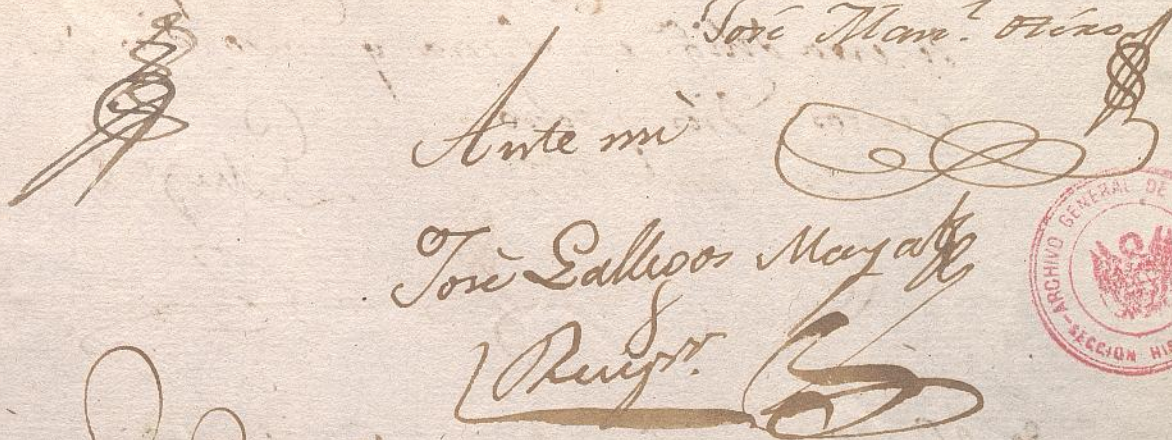 José Man.l Otero
Ante mi
José Gallegos Maya
ARCHIVO GENERAL DE
SECCION HIS